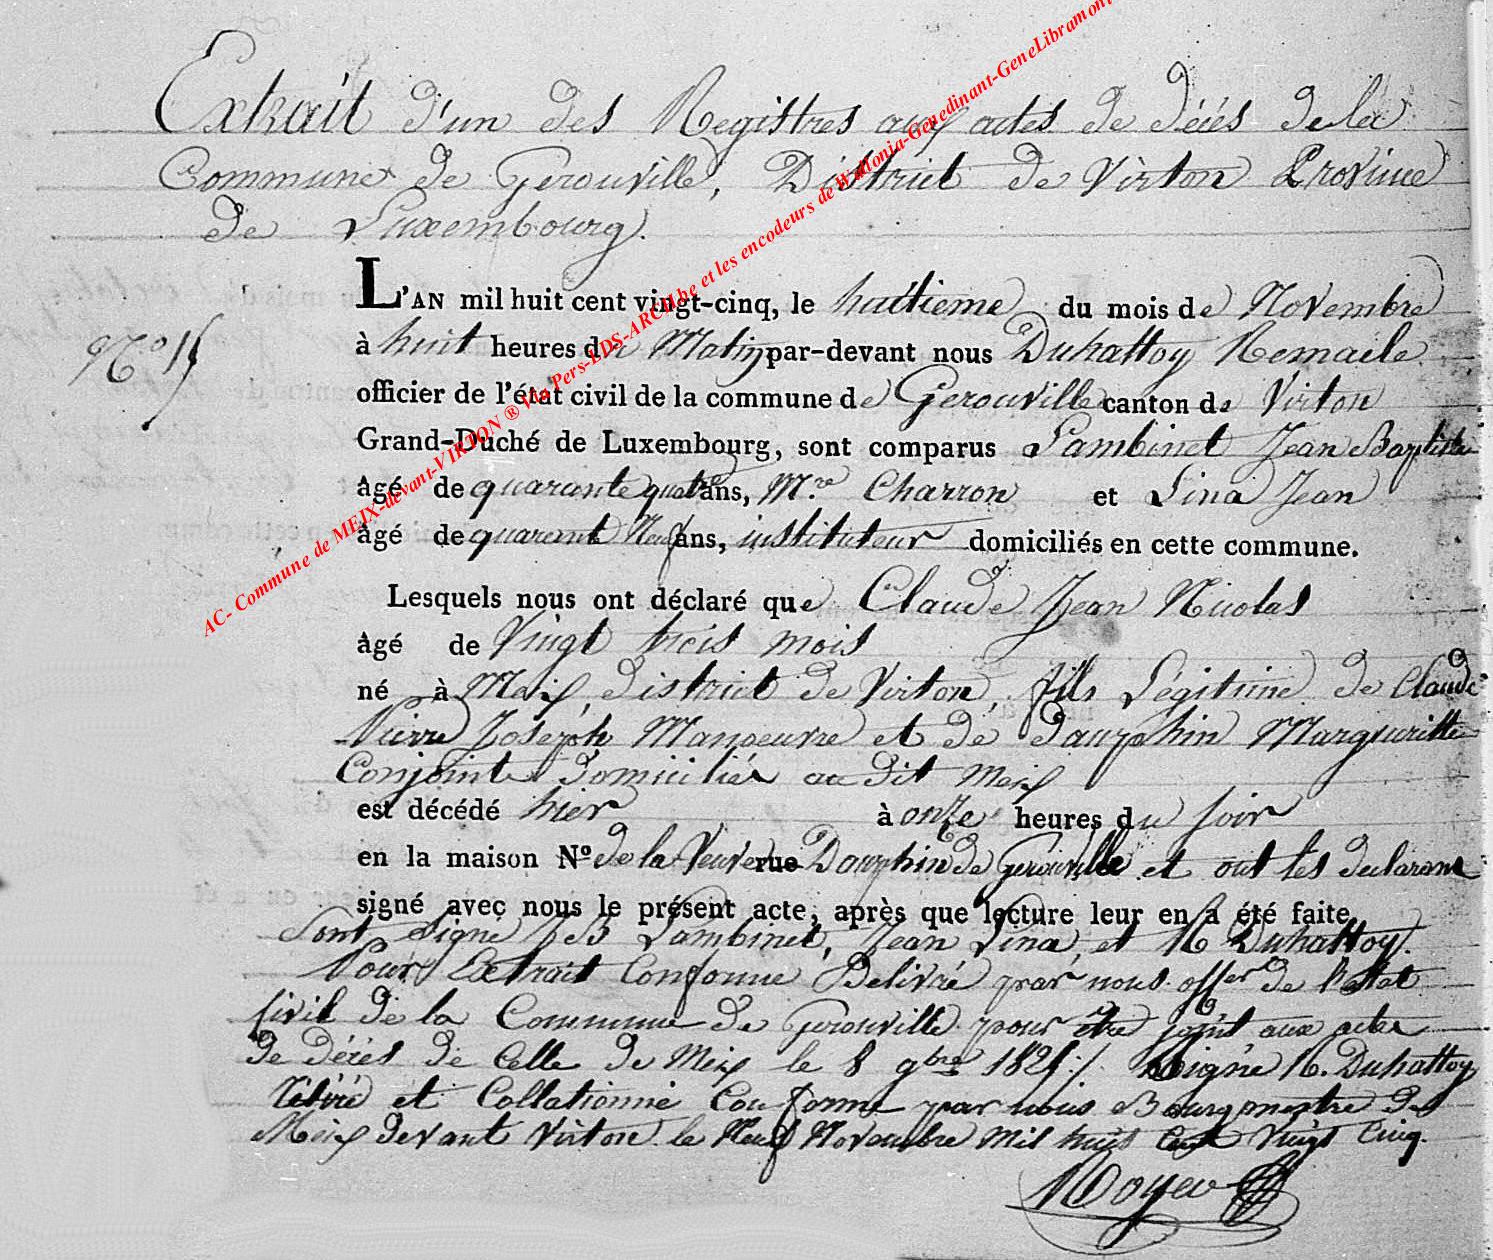 Extrait d'un des Registres aux actes de décés de la
Commune de Gerouville, District de Virton Province
de Luxembourg.
L'AN mil huit cent vingt-cinq, le huitieme du mois de Novembre
N.o 15
à huit heures du Matin par-devant nous Duhattoy Remacle
officier de l'état civil de la commune de Gerouville canton de Virton
Grand-Duché de Luxembourg, sont comparus Lambinet Jean Baptiste
âgé de quarante quatre ans, M.re Charron et Lina Jean
âgé de quarante Neuf ans, instituteur domiciliés en cette commune.
Lesquels nous ont déclaré que Claude Jean Nicolas
âgé de Vingt trois mois
né à Meix, district de Virton, fils Légitime de Claude
Pierre Joseph Manoeuvre et de Dauphin Margueritte
Conjoints domiciliés au dit Meix
est décédé hier à onze heures du soir
en la maison N.o de la Veuve rue Dauphin de Gerouville et ont les declarans
signé avec nous le présent acte, après que lecture leur en a été faite.
Sont Signé J B Lambinet, Jean Lina, et R Duhattoy.
Pour Extrait Conforme Delivré par nous off.er de l'etat
Civil de la Commune de Gerouville pour être joint aux actes
de décés de Celle de Meix le 8 9bre 1825 /. Signé R. Duhattoy
et Collationné Conforme par nous Bourgmestre de
Meix devant Virton le Neuf Novembre mil huit cent Vingt Cinq.
AC- Commune de MEIX-devant-VIRTON ® Via Pers-LDS-ARCH.be et les encodeurs de Wallonia-Genedinant-GeneLibramont